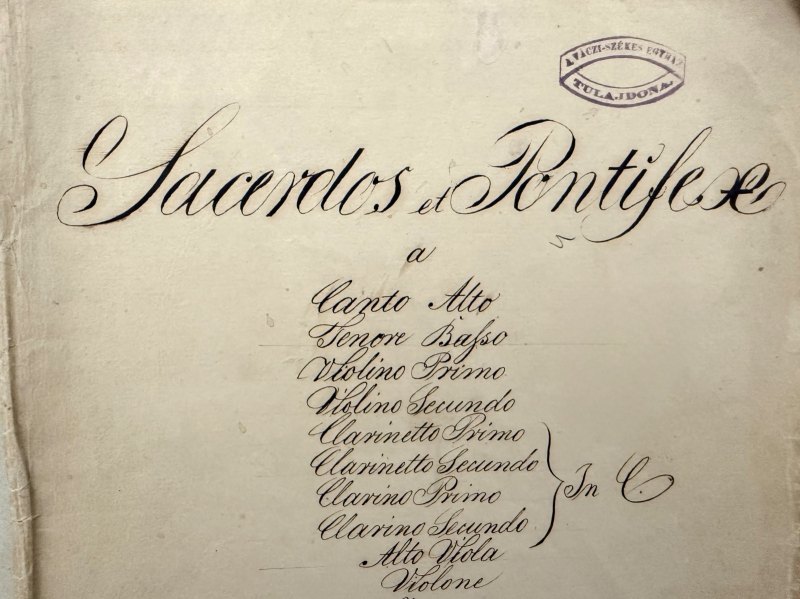 A VÁCZI-SZÉKES EGYHÁZ
TULAJDONA.
Sacerdos et Pontifex
a
Canto Alto
Tenore Baſso
Violino Primo
Violino Secundo
Clarinetto Primo
Clarinetto Secundo
Clarino Primo
Clarino Secundo
In C.
Alto Viola
Violone